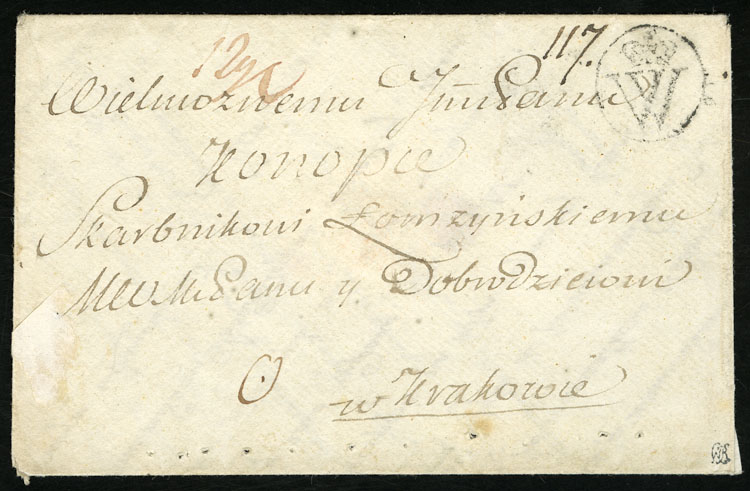 12
117.
Wielmożnemu Jmć Panu
Konopce
Skarbnikowi Łomżyńskiemu
Panu y Dobrodzieiowi
w Krakowie